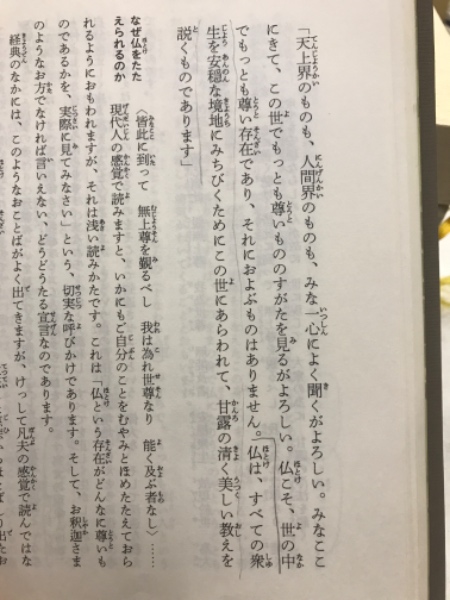 「天上界のものも、人間界のものも、みな一心によく聞くがよろしい。みなここ
にきて、この世でもっとも尊いもののすがたを見るがよろしい。仏こそ、世の中
でもっとも尊い存在であり、それにおよぶものはありません。仏は、すべての衆
生を安穏な境地にみちびくためにこの世にあらわれて、甘露の清く美しい教えを
説くものであります」
なぜ仏をたた
えられるのか
〈皆此に到って 無上尊を観るべし 我は為れ世尊なり 能く及ぶ者なし〉……
現代人の感覚で読みますと、いかにもご自分のことをむやみとほめたたえておら
れるようにおもわれますが、それは浅い読みかたです。これは「仏という存在がどんなに尊いも
のであるかを、実際に見てみなさい」という、切実な呼びかけであります。そして、お釈迦さま
のようなお方でなければ言いえない、どうどうたる宣言なのであります。
経典のなかには、このようなおことばがよく出てきますが、けっして凡夫の感覚で読んではな